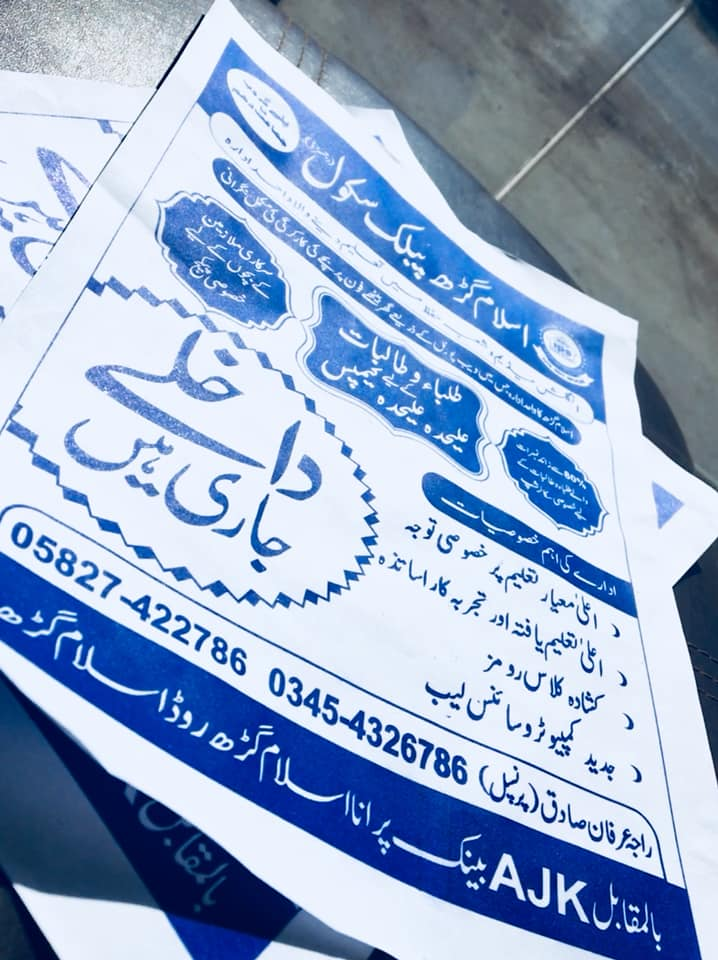 اسلام گڑھ پبلک سکول (رجسٹرڈ)
سرکاری ملازمین
کے بچوں کے لیے
خصوصی پیکج
طلباء و طالبات
کے لیے کیمپس
علیحدہ علیحدہ
80% سے زائد نمبرات
داخلے
جاری ہیں
ادارے کی اہم خصوصیات
اعلیٰ معیار تعلیم پر خصوصی توجہ
اعلیٰ تعلیم یافتہ اور تجربہ کار اساتذہ
کشادہ کلاس رومز
جدید کمپیوٹر و سائنس لیب
راجہ عرفان صادق (پرنسپل) 0345-4326786 05827-422786
بالمقابل AJK بینک پرانا اسلام گڑھ روڈ اسلام گڑھ
بالمقابل